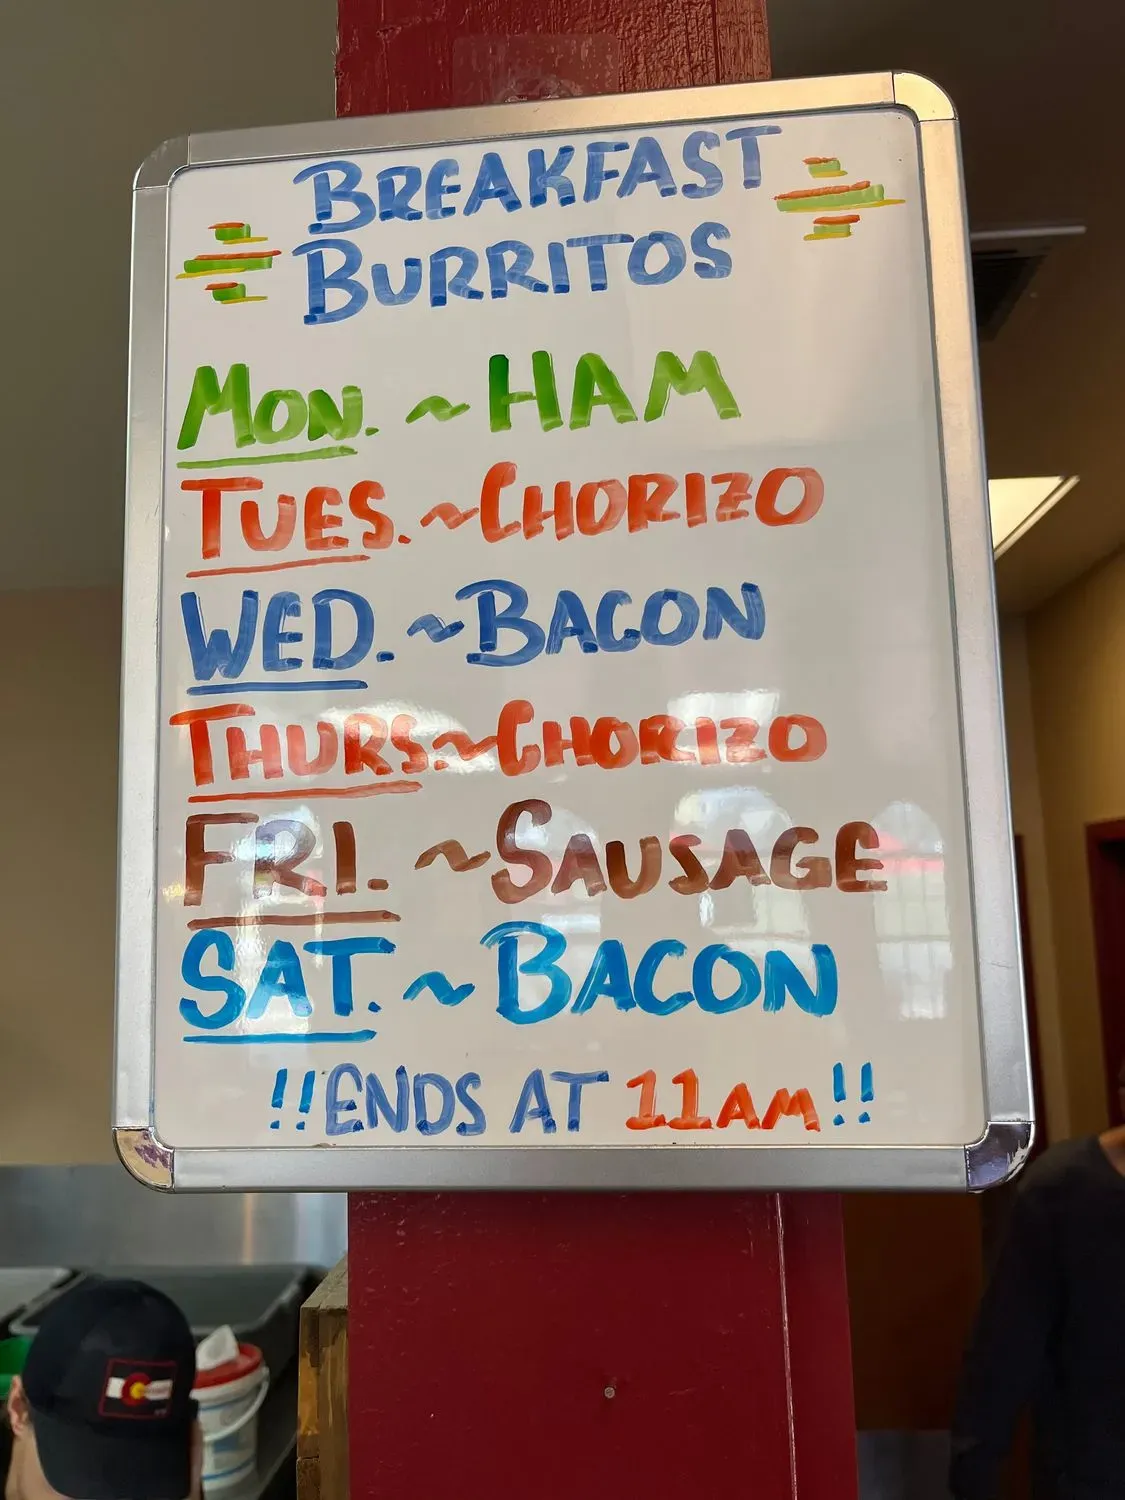 BREAKFAST
BURRITOS
MON. ~ HAM
TUES. ~ CHORIZO
WED. ~ BACON
THURS ~ CHORIZO
FRI. ~ SAUSAGE
SAT. ~ BACON
!!ENDS AT 11AM!!